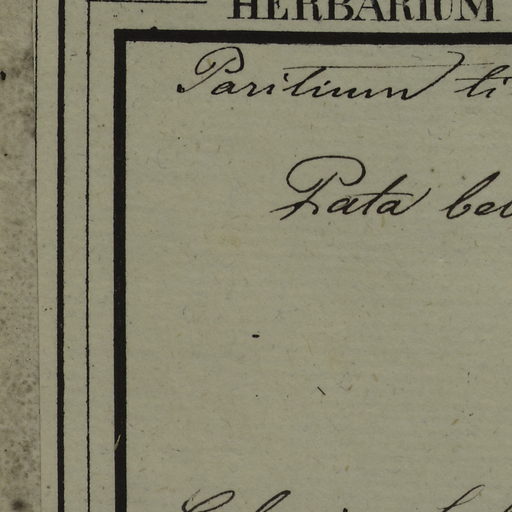 HERBARIUM
Paritium ti
Pata be